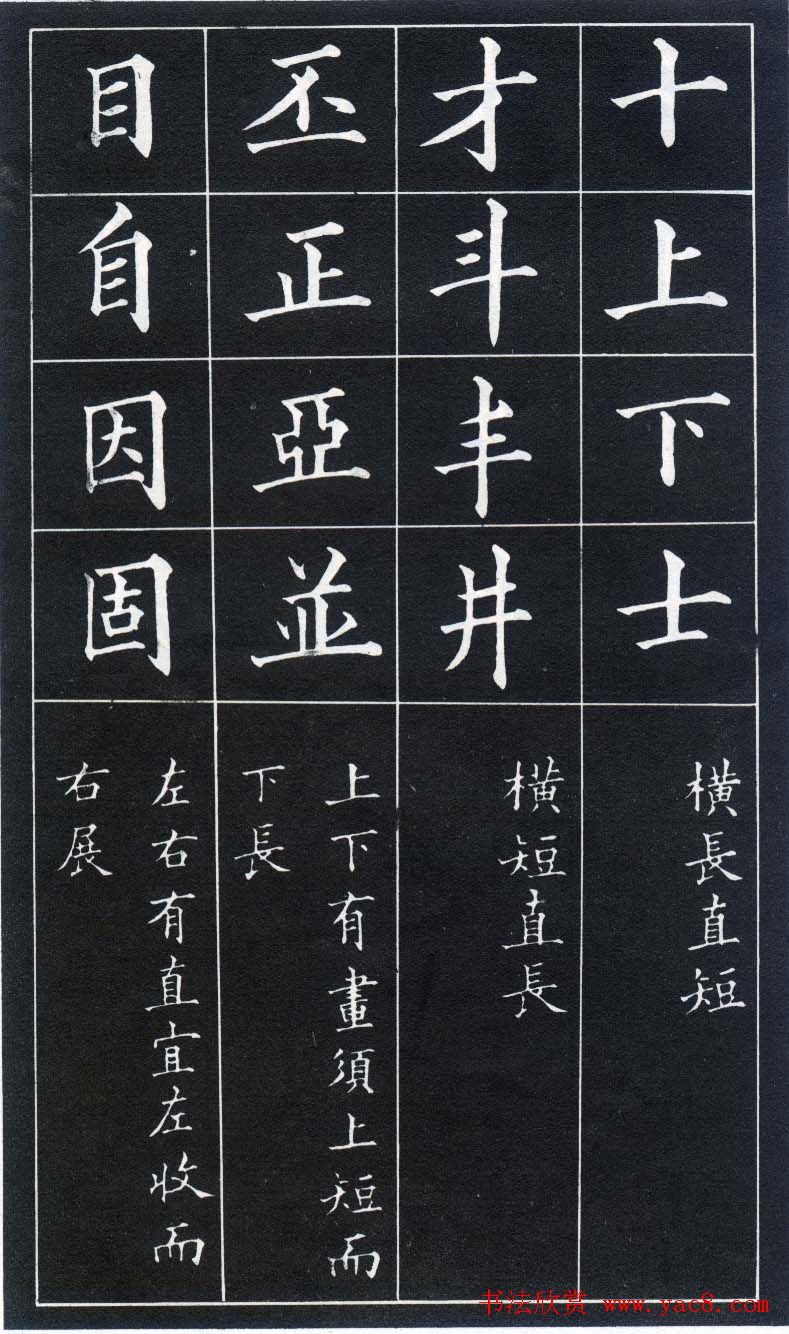 十上下士
横長直短
才斗丰井
横短直長
丕正亞並
上下有畫須上短而
下長
目自因固
左右有直宜左收而
右展
书法欣赏 www.yac8.com